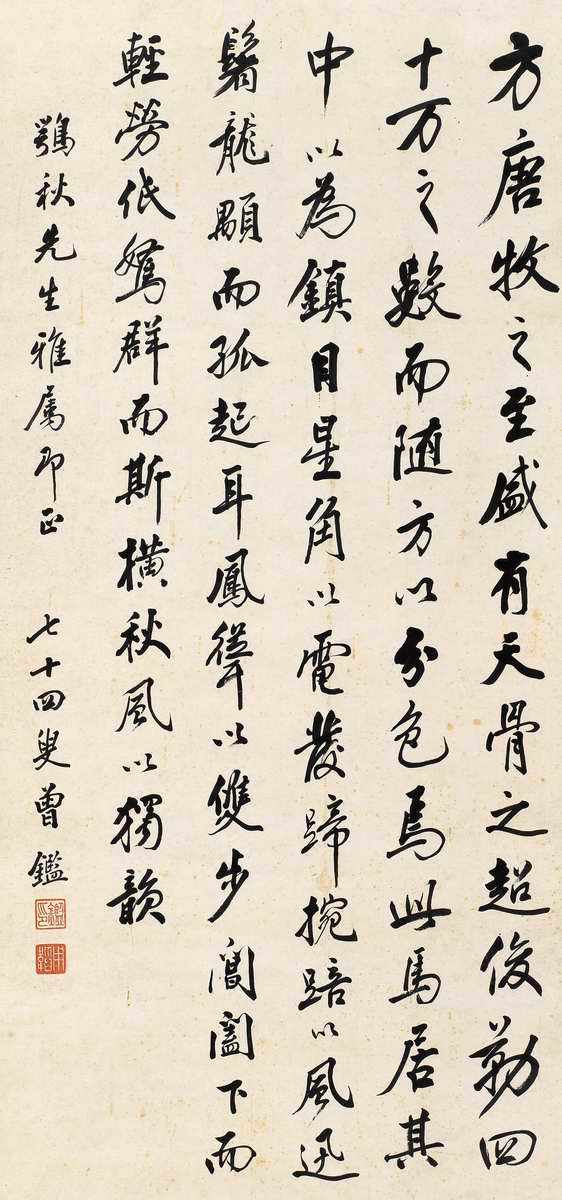 方唐牧之至盛有天骨之超俊勒四
十万之數而随方以分色焉此馬居其
中以為鎮目星角以電發蹄捥踣以風迅
鬐龍顒而孤起耳鳳聳以雙步閶闔下而
輕勞低駑群而斯橫秋風以獨韻
鶚秋先生雅属即正 七十四叟曾鑑